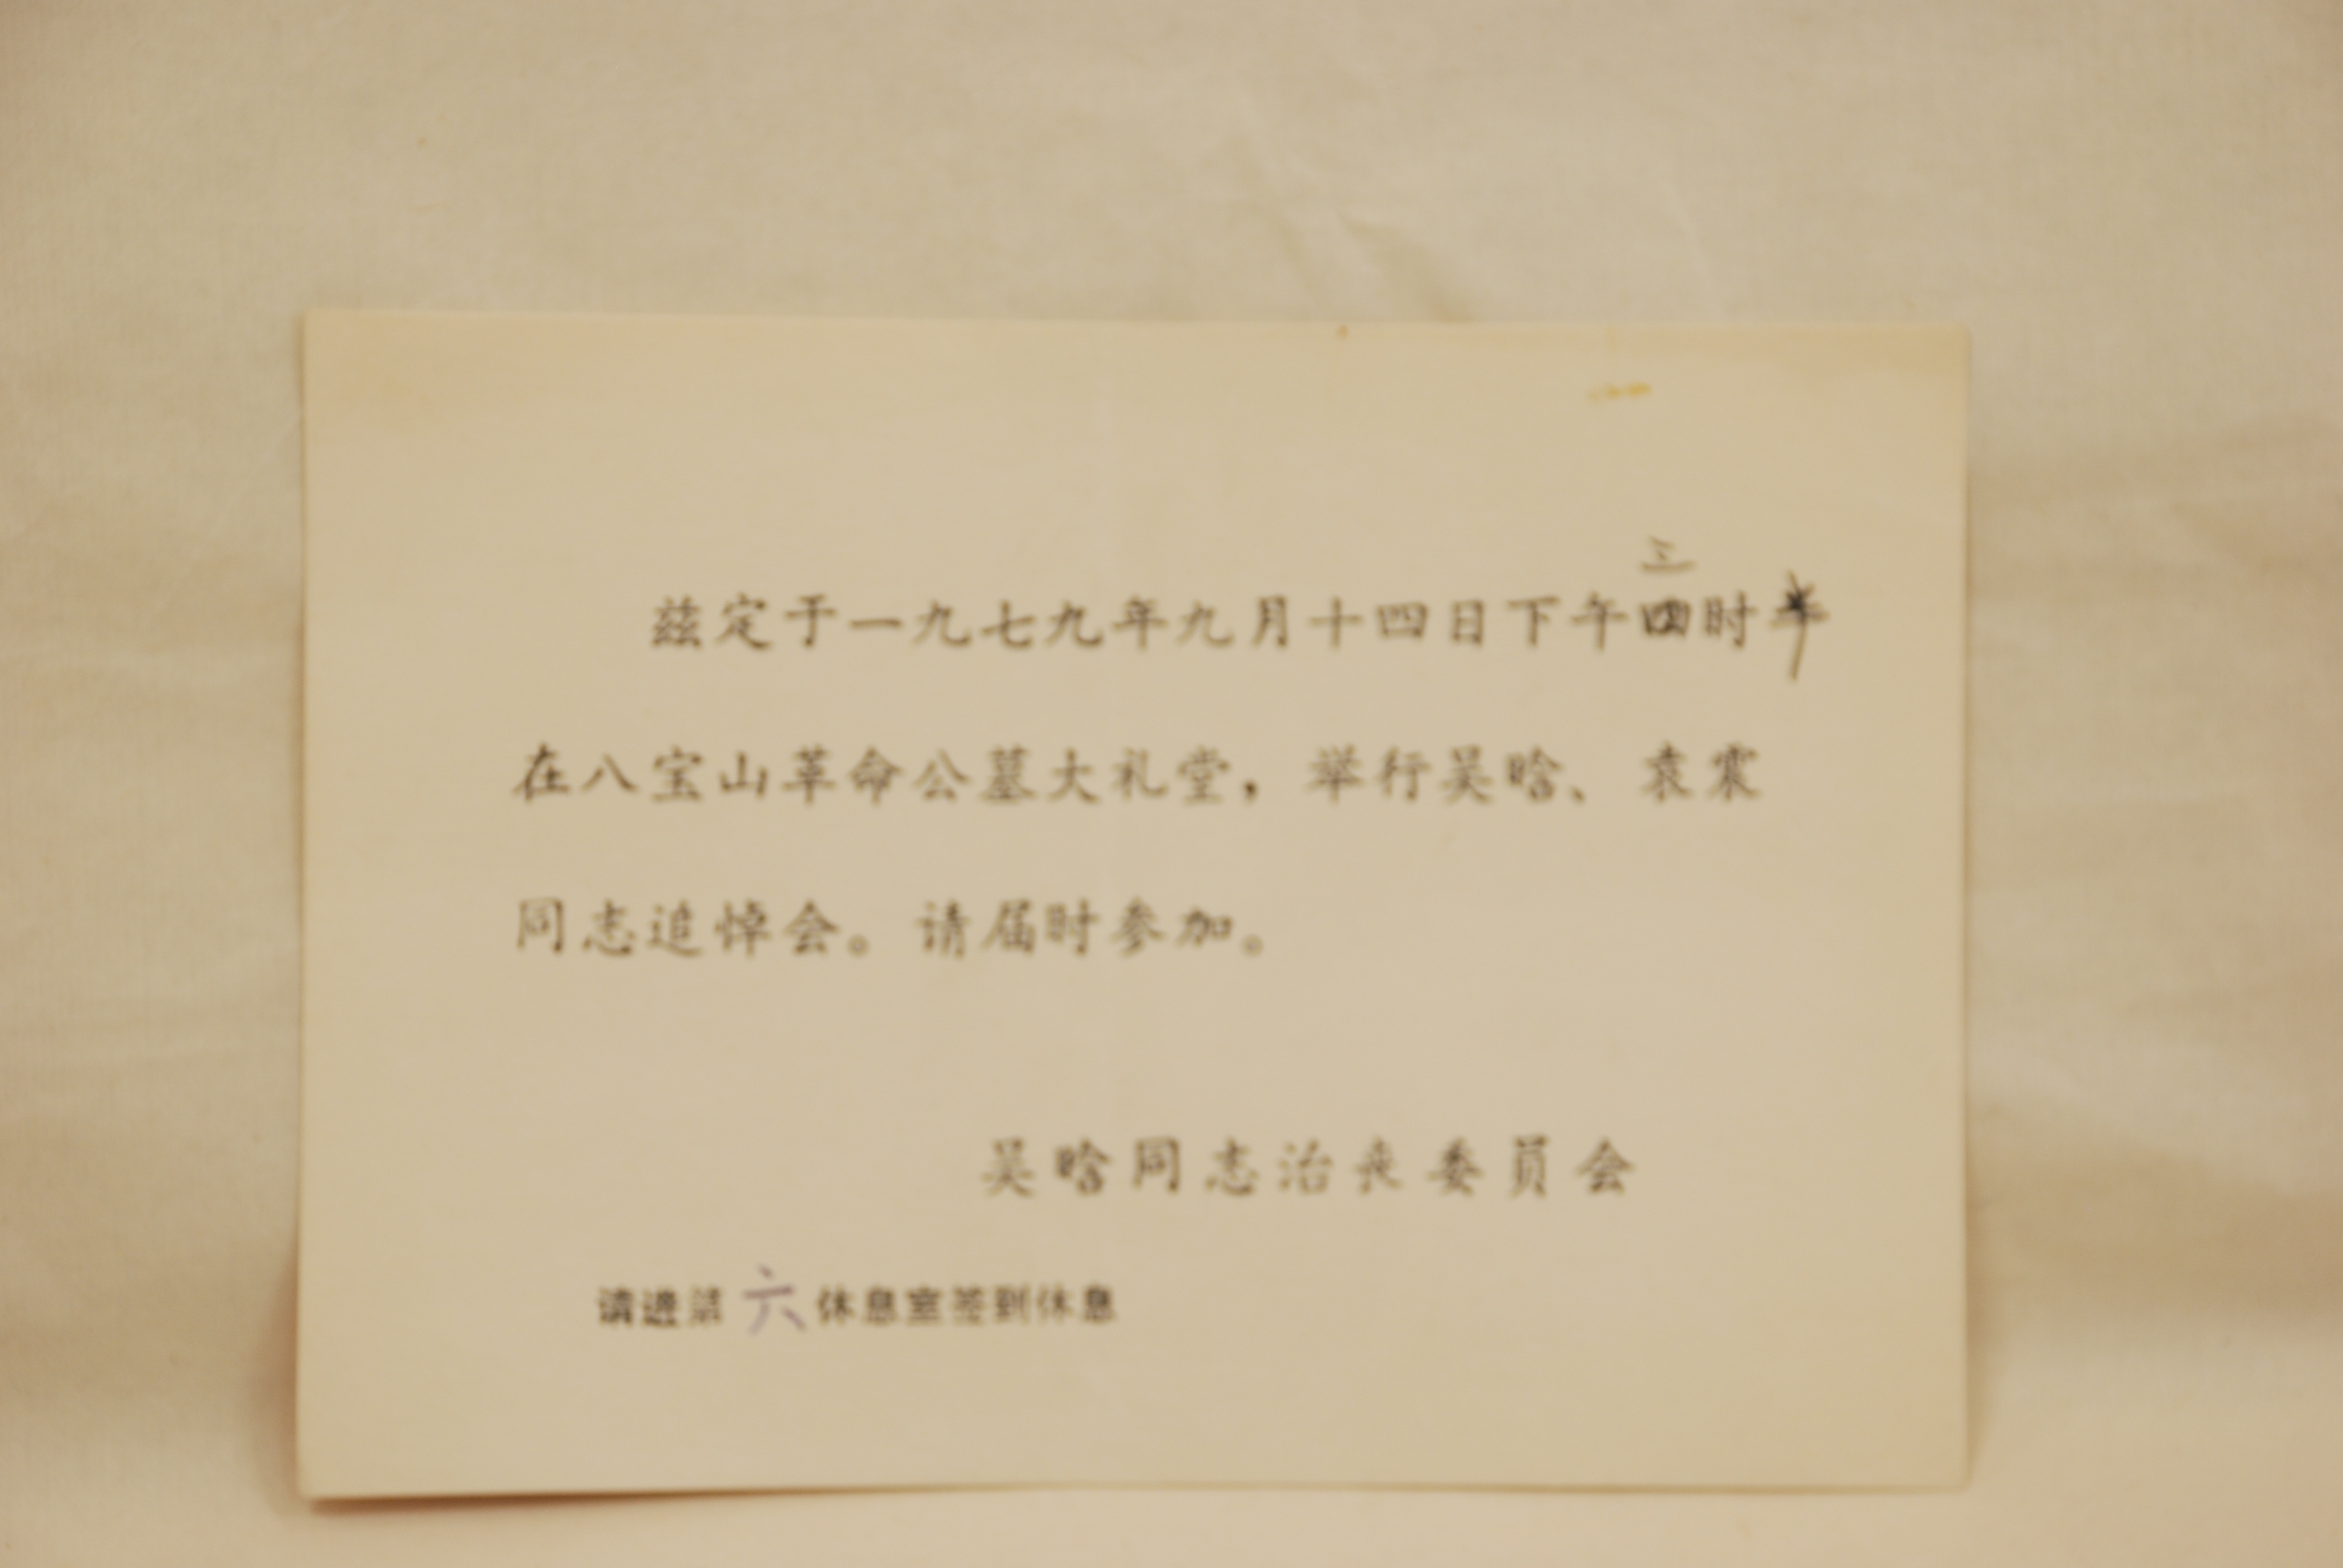 三
兹定于一九七九年九月十四日下午四时半
在八宝山革命公墓大礼堂，举行吴晗、袁震
同志追悼会。请届时参加。
吴晗同志治丧委员会
请进第六休息室签到休息